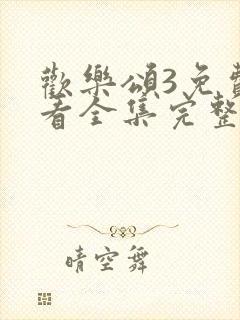 歡樂頌3免費
看全集完整
晴空舞